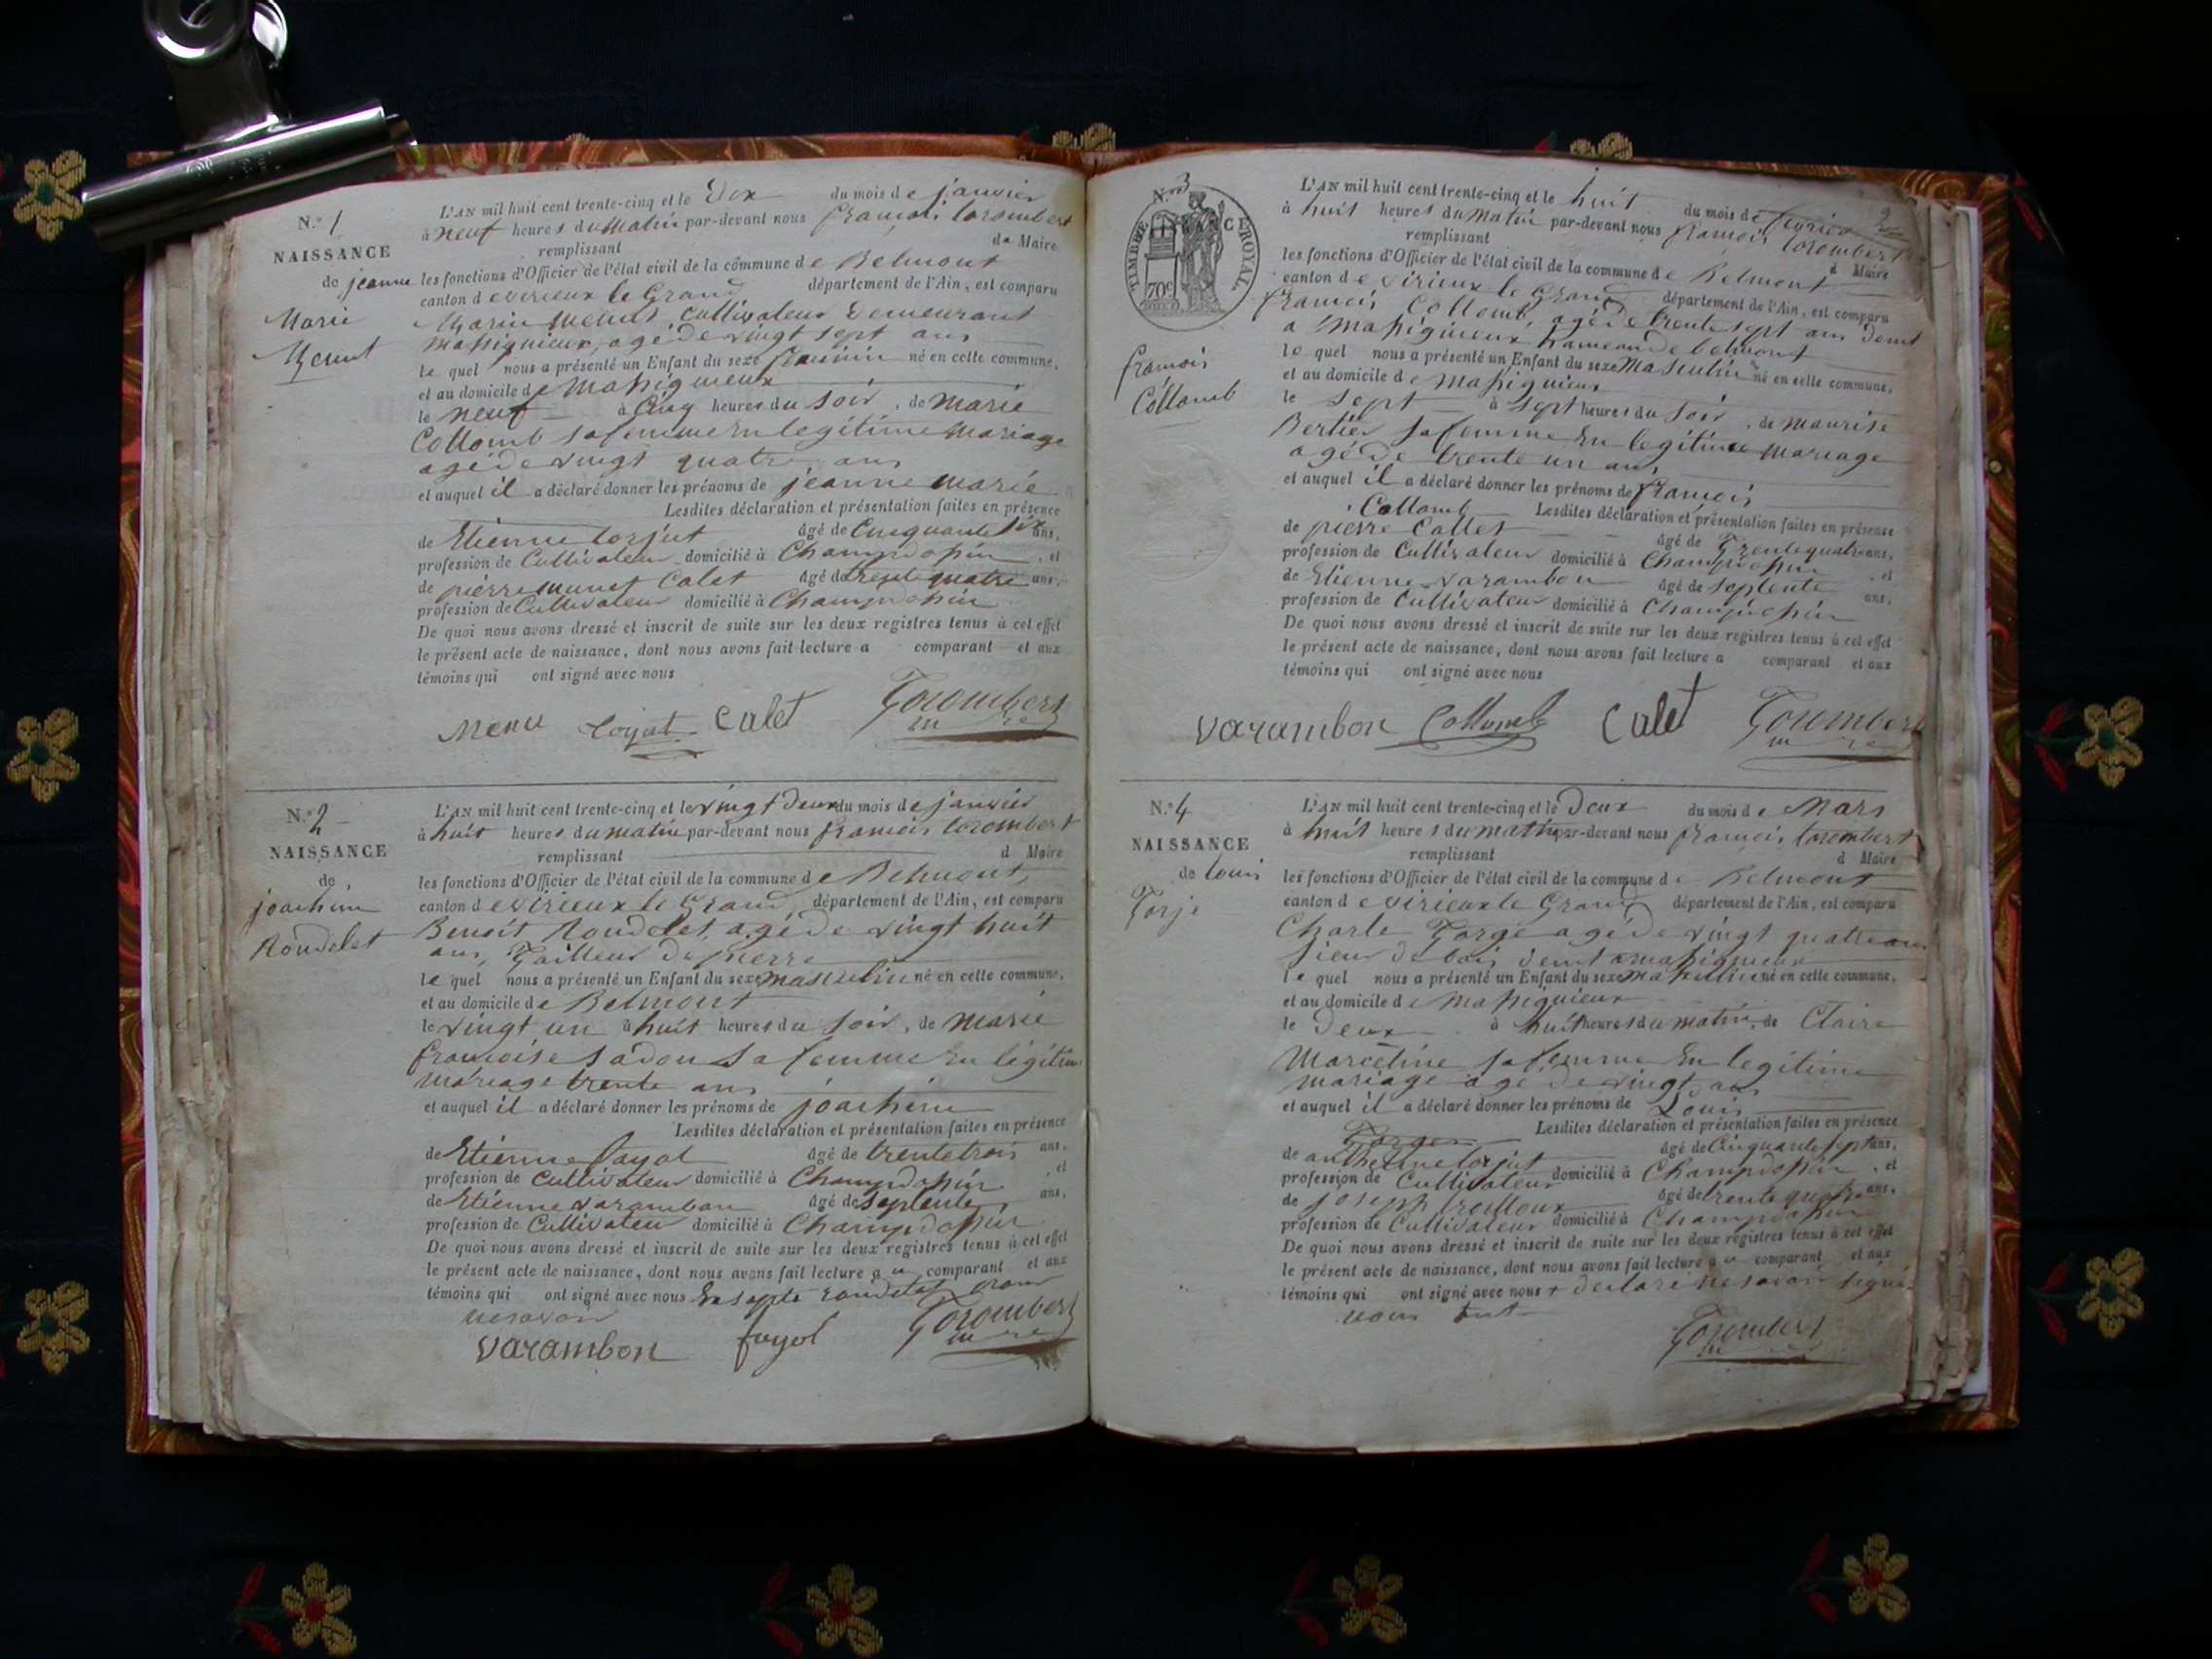 N.° 1
NAISSANCE
de jeanne
Marie
Menut
L'AN mil huit cent trente-cinq et le Dix du mois de janvier
à neuf heures du Matin par-devant nous françois torombert
remplissant de Maire
les fonctions d'Officier de l'état civil de la commune de Belmont
canton de virieux le Grand département de l'Ain, est comparu
Marin Menut Cultivateur Demeurant
Massignieux, agé de vingt sept ans
le quel nous a présenté un Enfant du sexe feminin né en cette commune,
et au domicile de Massignieux
le neuf à Cinq heures du soir, de marie
Collomb sa femme En legitime mariage
agé de vingt quatre ans
et auquel il a déclaré donner les prénoms de jeanne marie
Lesdites déclaration et présentation faites en présence
de Etienne torjut âgé de Cinquante six ans,
profession de Cultivateur domicilié à Champdossin, et
de pierre munet Calet âgé de trente quatre ans,
profession de Cultivateur domicilié à Champdossin
De quoi nous avons dressé et inscrit de suite sur les deux registres tenus à cet effet
le présent acte de naissance, dont nous avons fait lecture a comparant et aux
témoins qui ont signé avec nous
Menu Calet Torombert
N.° 2
NAISSANCE
de
joachim
Roudelet
L'AN mil huit cent trente-cinq et le vingt Deux du mois de janvier
à huit heures du matin par-devant nous françois torombert
remplissant d Maire
les fonctions d'Officier de l'état civil de la commune de Belmont,
canton de virieux le Grand département de l'Ain, est comparu
Benoit Roudelet, agé de vingt huit
ans, Tailleur De pierre
le quel nous a présenté un Enfant du sexe masculin né en cette commune,
et au domicile de Belmont
le vingt un à huit heures du soir, de marie
françoise sadou sa femme En légitime
mariage trente ans
et auquel il a déclaré donner les prénoms de joachim
Lesdites déclaration et présentation faites en présence
de Etienne fayol âgé de trente trois ans,
profession de Cultivateur domicilié à Champdossin, et
de Etienne varambon âgé de septente ans,
profession de Cultivateur domicilié à Champdossin
De quoi nous avons dressé et inscrit de suite sur les deux registres tenus à cet effet
le présent acte de naissance, dont nous avons fait lecture au comparant et aux
témoins qui ont signé avec nous
varambon fayol Torombert
N.° 3
TIMBRE ROYAL
70c
françois
Collomb
L'AN mil huit cent trente-cinq et le huit du mois de fevrier
à huit heures du Matin par-devant nous françois torombert
remplissant d Maire
les fonctions d'Officier de l'état civil de la commune de Belmont
canton de virieux le Grand département de l'Ain, est comparu
françois Collomb, agé de trente sept ans demt
a Massignieux hameau de belmont
le quel nous a présenté un Enfant du sexe Masculin né en cette commune,
et au domicile de Massignieux
le sept à sept heures du soir, de maurise
Bertier sa femme En legitime mariage
agé De trente un ans
et auquel il a déclaré donner les prénoms de françois
Collomb Lesdites déclaration et présentation faites en présence
de pierre Callet âgé de Trente quatre ans,
profession de Cultivateur domicilié à Champdossin, et
de Etienne varambon âgé de septente ans,
profession de Cultivateur domicilié à Champdossin
De quoi nous avons dressé et inscrit de suite sur les deux registres tenus à cet effet
le présent acte de naissance, dont nous avons fait lecture a comparant et aux
témoins qui ont signé avec nous
varambon Collomb Calet Torombert
N.° 4
NAISSANCE
de louis
L'AN mil huit cent trente-cinq et le Deux du mois de Mars
à huit heures du matin par-devant nous françois torombert
remplissant d Maire
les fonctions d'Officier de l'état civil de la commune de Belmont
canton de virieux le Grand département de l'Ain, est comparu
Charle Gorge agé de vingt quatre ans
sieur de bois demt a massignieux
le quel nous a présenté un Enfant du sexe masculin né en cette commune,
et au domicile de Massignieux
le Deux à huit heures du matin, de Claire
Marceline sa femme En legitime
mariage agé de vingt ans
et auquel il a déclaré donner les prénoms de Louis
Lesdites déclaration et présentation faites en présence
de anthelme torjut âgé de Cinquante sept ans,
profession de Cultivateur domicilié à Champdossin, et
de joseph trolloux âgé de trente quatre ans,
profession de Cultivateur domicilié à Champdossin
De quoi nous avons dressé et inscrit de suite sur les deux registres tenus à cet effet
le présent acte de naissance, dont nous avons fait lecture au comparant et aux
témoins qui ont signé avec nous declaré ne savoir
Torombert